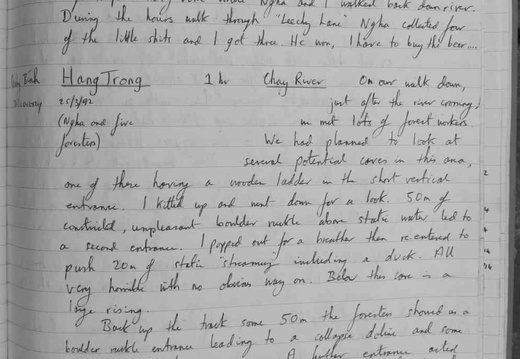 Ngha and I walked back down river.
During the hours walk through "Leechy Lane" Ngha collected four
of the little shits and I got three. He won, I have to buy the beer....
Hang Trong 1 hr Chay River On our walk down,
25/3/92 just after the river crossing,
(Ngha and five we met lots of forest workers.
foresters) We had planned to look at
several potential caves in this area,
one of these having a wooden ladder in the short vertical
entrance. I kitted up and went down for a look. 50m of
constricted, unpleasant boulder ruckle above static water led to
a second entrance. I popped out for a breather then re-entered to
push 20m of static "streamway" including a duck. All
very horrible with no obvious way on. Below this cave is a
large rising.
Back up the track some 50m the foresters showed us a
boulder ruckle entrance leading to a collapse doline and some
A further entrance acted